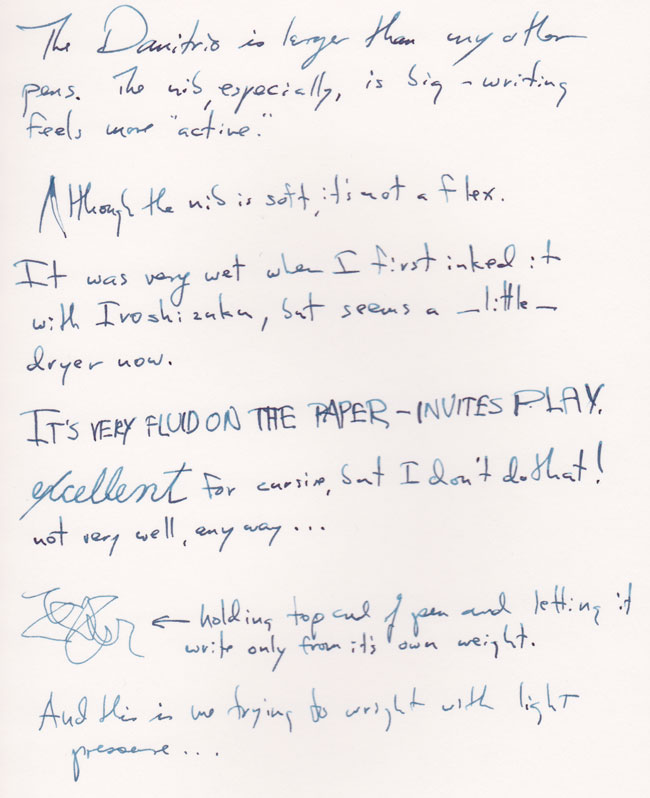 The Danitrio is larger than my other
pens. The nib, especially, is big – writing
feels more "active."
Although the nib is soft, it's not a flex.
It was very wet when I first inked it
with Iroshizuku, but seems a _little_
dryer now.
IT'S VERY FLUID ON THE PAPER – INVITES PLAY.
excellent for cursive, but I don't do that!
not very well, anyway...
← holding top end of pen and letting it
write only from it's own weight.
And this is me trying to wright with light
pressure...